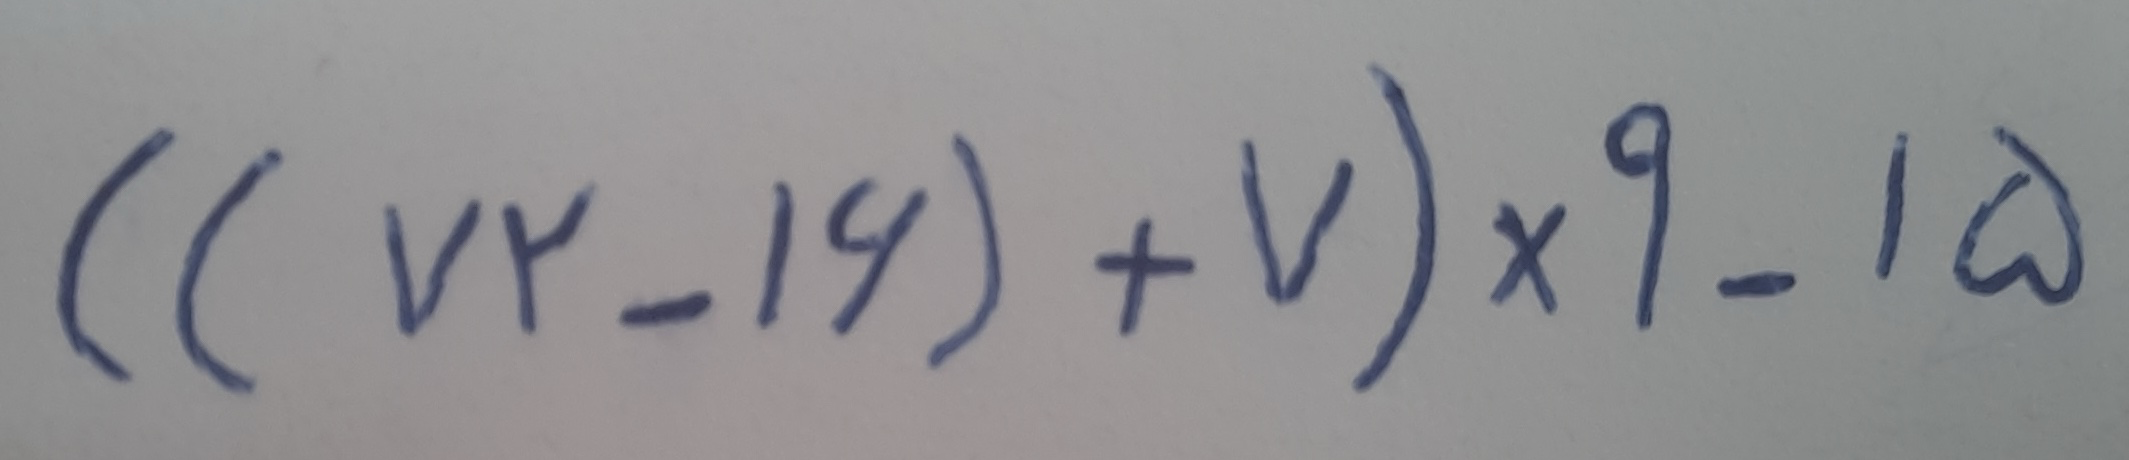 ((۷۲-۱۶)+۷)×۹-۱۵